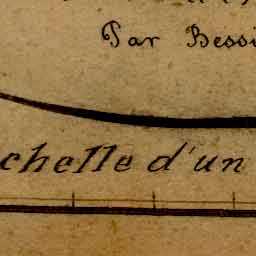 Par Bessi
chelle d'un